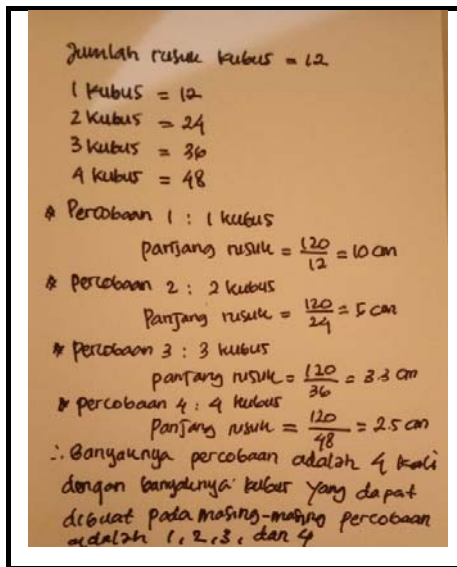 Jumlah rusuk kubus = 12
1 kubus = 12
2 kubus = 24
3 kubus = 36
4 kubus = 48
* Percobaan 1 : 1 kubus
Panjang rusuk = 120/12 = 10 cm
* percobaan 2 : 2 kubus
Panjang rusuk = 120/24 = 5 cm
* percobaan 3 : 3 kubus
panjang rusuk = 120/36 = 3.3 cm
* percobaan 4 : 4 kubus
Panjang rusuk = 120/48 = 2.5 cm
∴ Banyaknya percobaan adalah 4 kali
dengan banyaknya kubus yang dapat
dibuat pada masing-masing percobaan
adalah 1, 2, 3, dan 4